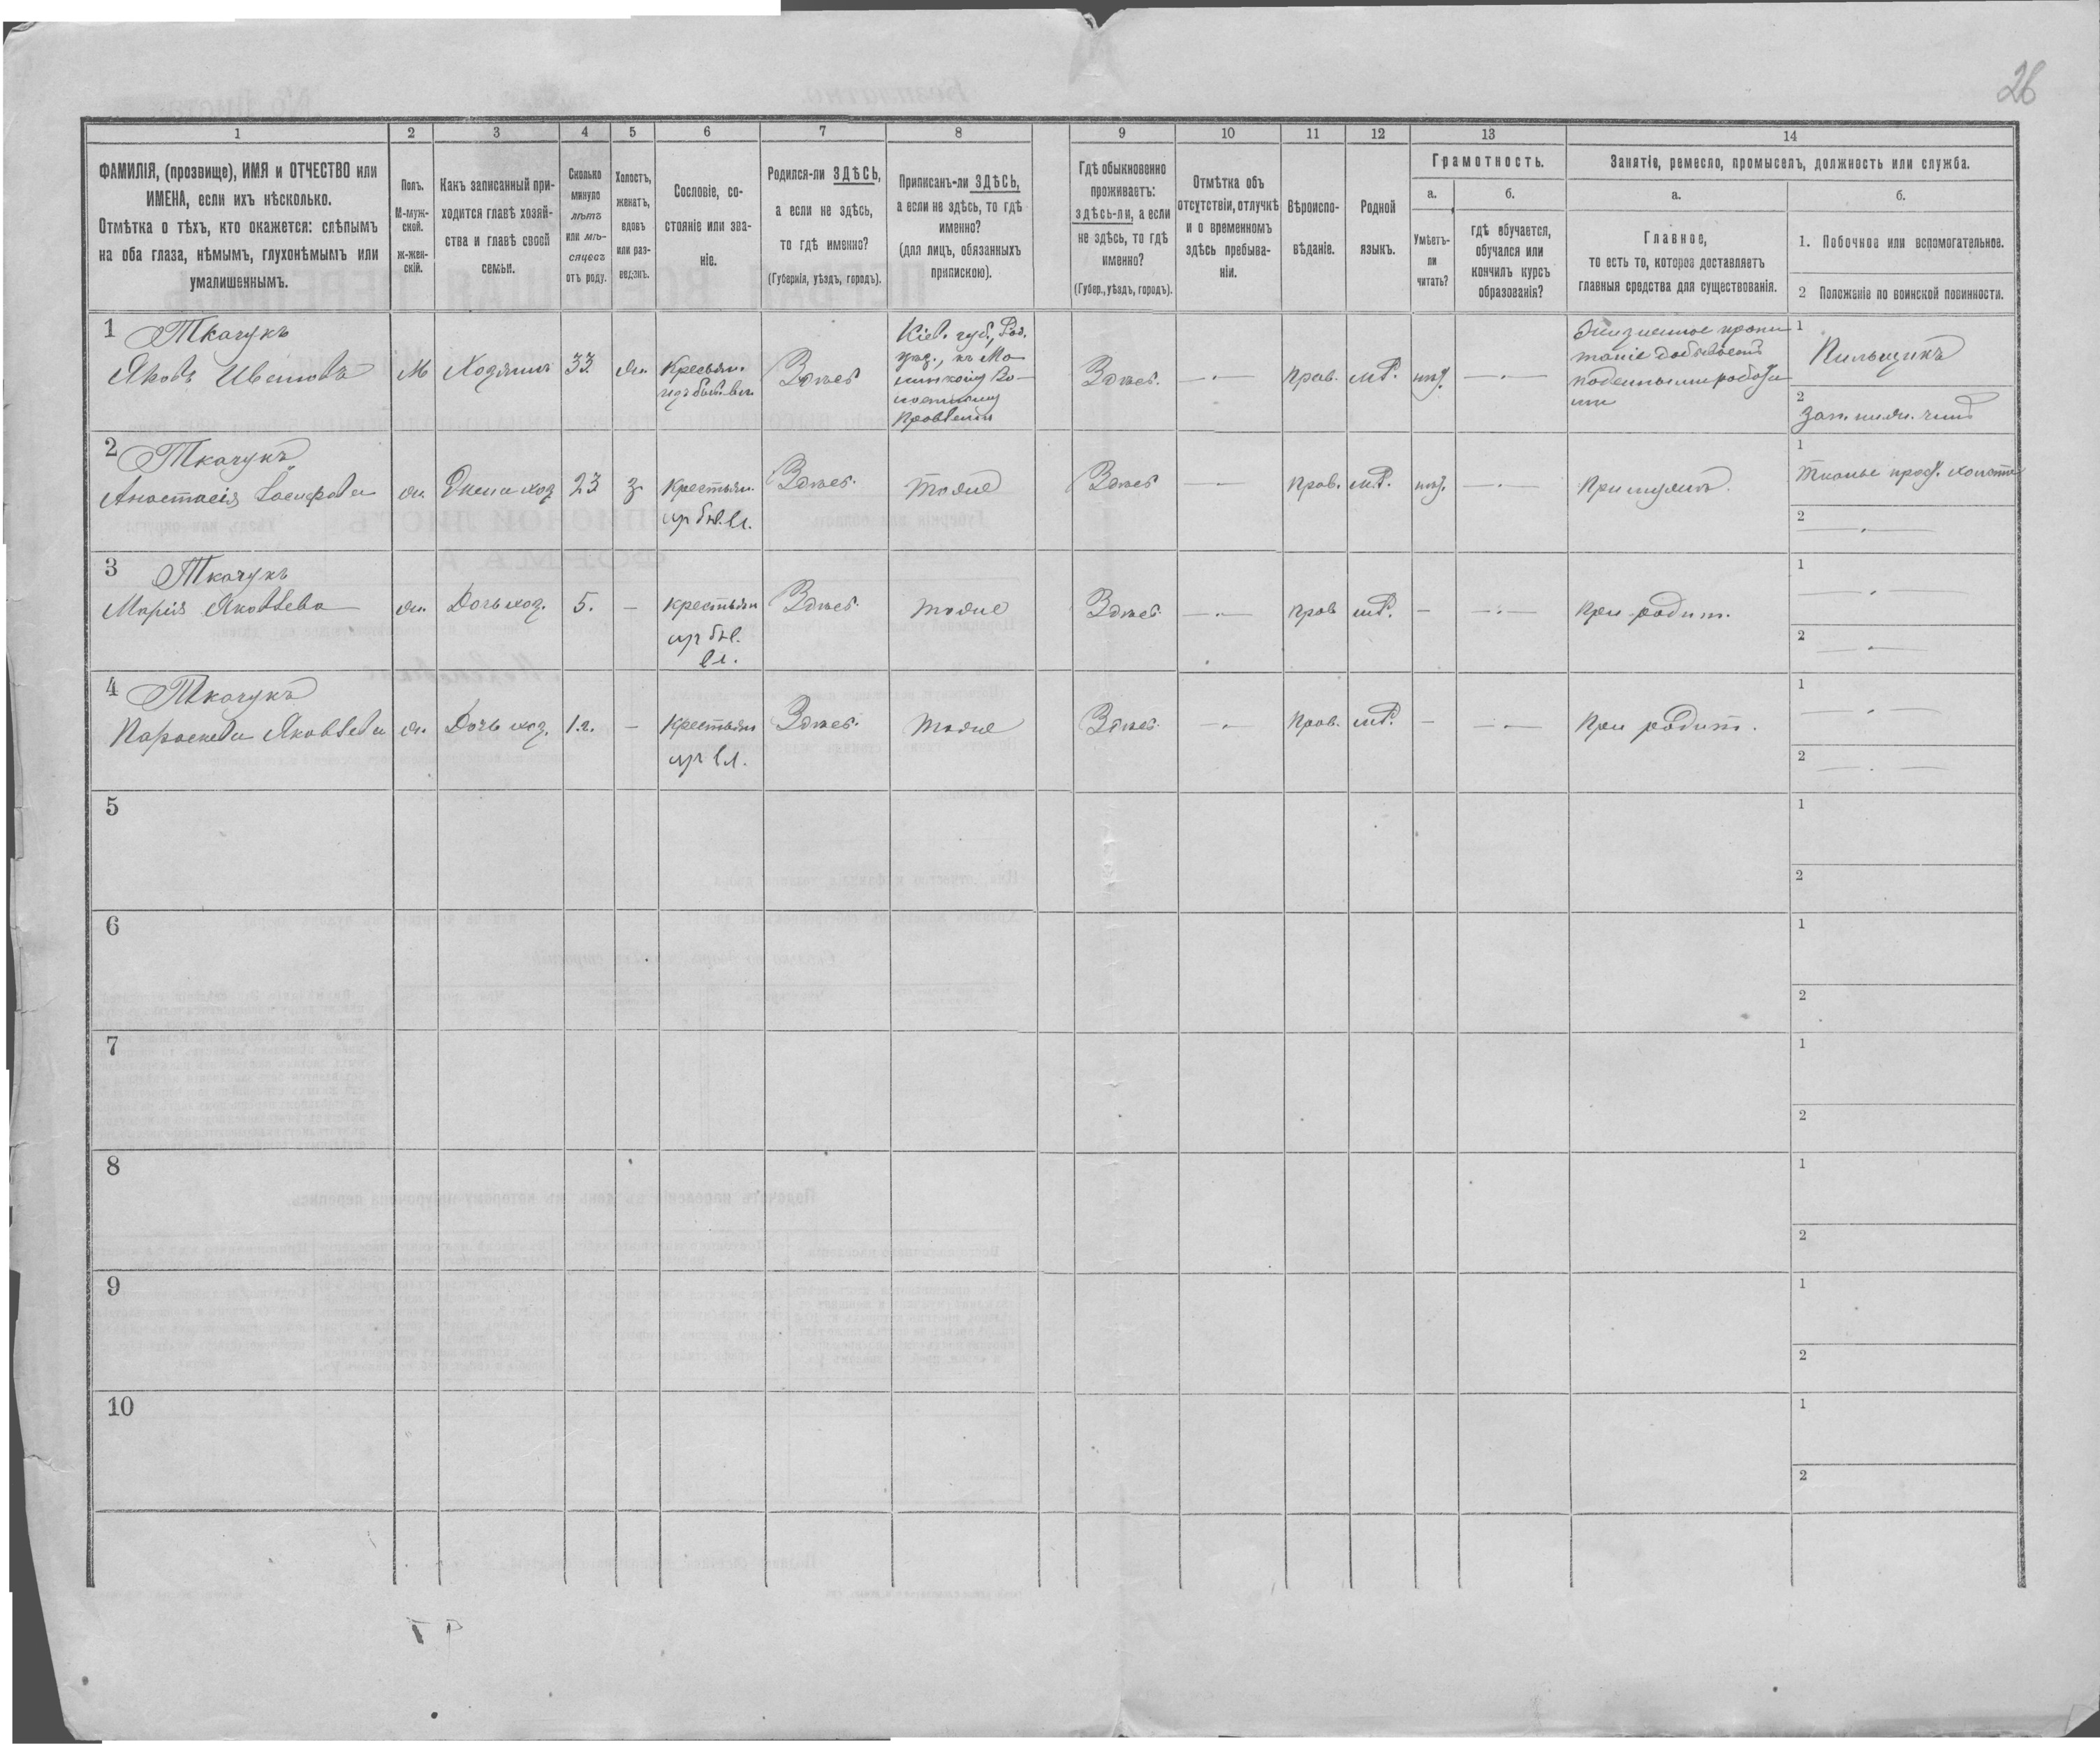 26
1 2 3 4 5 6 7 8 9 10 11 12 13 14
ФАМИЛІЯ, (прозвище), ИМЯ и ОТЧЕСТВО или
ИМЕНА, если ихъ нѣсколько.
Отмѣтка о тѣхъ, кто окажется: слѣпымъ
на оба глаза, нѣмымъ, глухонѣмымъ или
умалишеннымъ.
Полъ.
М-муж-
ской.
ж-жен-
скій.
Какъ записанный при-
ходится главѣ хозяй-
ства и главѣ своей
семьи.
Сколько
минуло
лѣтъ
или мѣ-
сяцевъ
отъ роду.
Холостъ,
женатъ,
вдовъ
или раз-
веденъ.
Сословіе, со-
стояніе или зва-
ніе.
Родился-ли ЗДѢСЬ,
а если не здѣсь,
то гдѣ именно?
(Губернія, уѣздъ, городъ).
Приписанъ-ли ЗДѢСЬ,
а если не здѣсь, то гдѣ
именно?
(для лицъ, обязанныхъ
припискою).
Гдѣ обыкновенно
проживаетъ:
здѣсь-ли, а если
не здѣсь, то гдѣ
именно?
(Губер., уѣздъ, городъ).
Отмѣтка объ
отсутствіи, отлучкѣ
и о временномъ
здѣсь пребыва-
ніи.
Вѣроиспо-
вѣданіе.
Родной
языкъ.
Грамотность.
а.
Умѣетъ-
ли
читать?
б.
гдѣ обучается,
обучался или
кончилъ курсъ
образованія?
Занятіе, ремесло, промыселъ, должность или служба.
а.
Главное,
то есть то, которое доставляетъ
главныя средства для существованія.
б.
1. Побочное или вспомогательное.
2 Положеніе по воинской повинности.
1 Ткачукъ
Яковъ Ивановъ
М
Хозяинъ
33
ж.
Крестьян.
изъ быв. вл.
Здѣсь
Кіев. губ., Рад.
уѣз., къ
Правленію
Здѣсь.
— . —
прав.
мР.
нѣт.
— . —
Жизненное пропи
таніе добываетъ
поденными работа
ми
1
Пильщикъ
2
зап. нижн. чинъ
2 Ткачукъ
Анастасія Іосифова
ж.
Жена хоз
23
з
Крестьян.
изъ быв. вл.
Здѣсь.
тоже
Здѣсь
— . —
прав.
мР.
нѣт.
— . —
При мужѣ.
1
Тканье прост. холста
2
— . —
3 Ткачукъ
Марія Яковлева
ж.
Дочь хоз.
5.
—
крестьян
изъ быв.
вл.
Здѣсь.
тоже
Здѣсь.
— . —
прав
мР.
—
— . —
При родит.
1
— . —
2
— . —
4 Ткачукъ
Параскева Яковлева
ж.
Дочь хоз.
1.г.
—
Крестьян
изъ вл.
Здѣсь.
тоже
Здѣсь.
— . —
прав.
мР.
—
— . —
При родит.
1
— . —
2
— . —
5
1
2
6
1
2
7
1
2
8
1
2
9
1
2
10
1
2